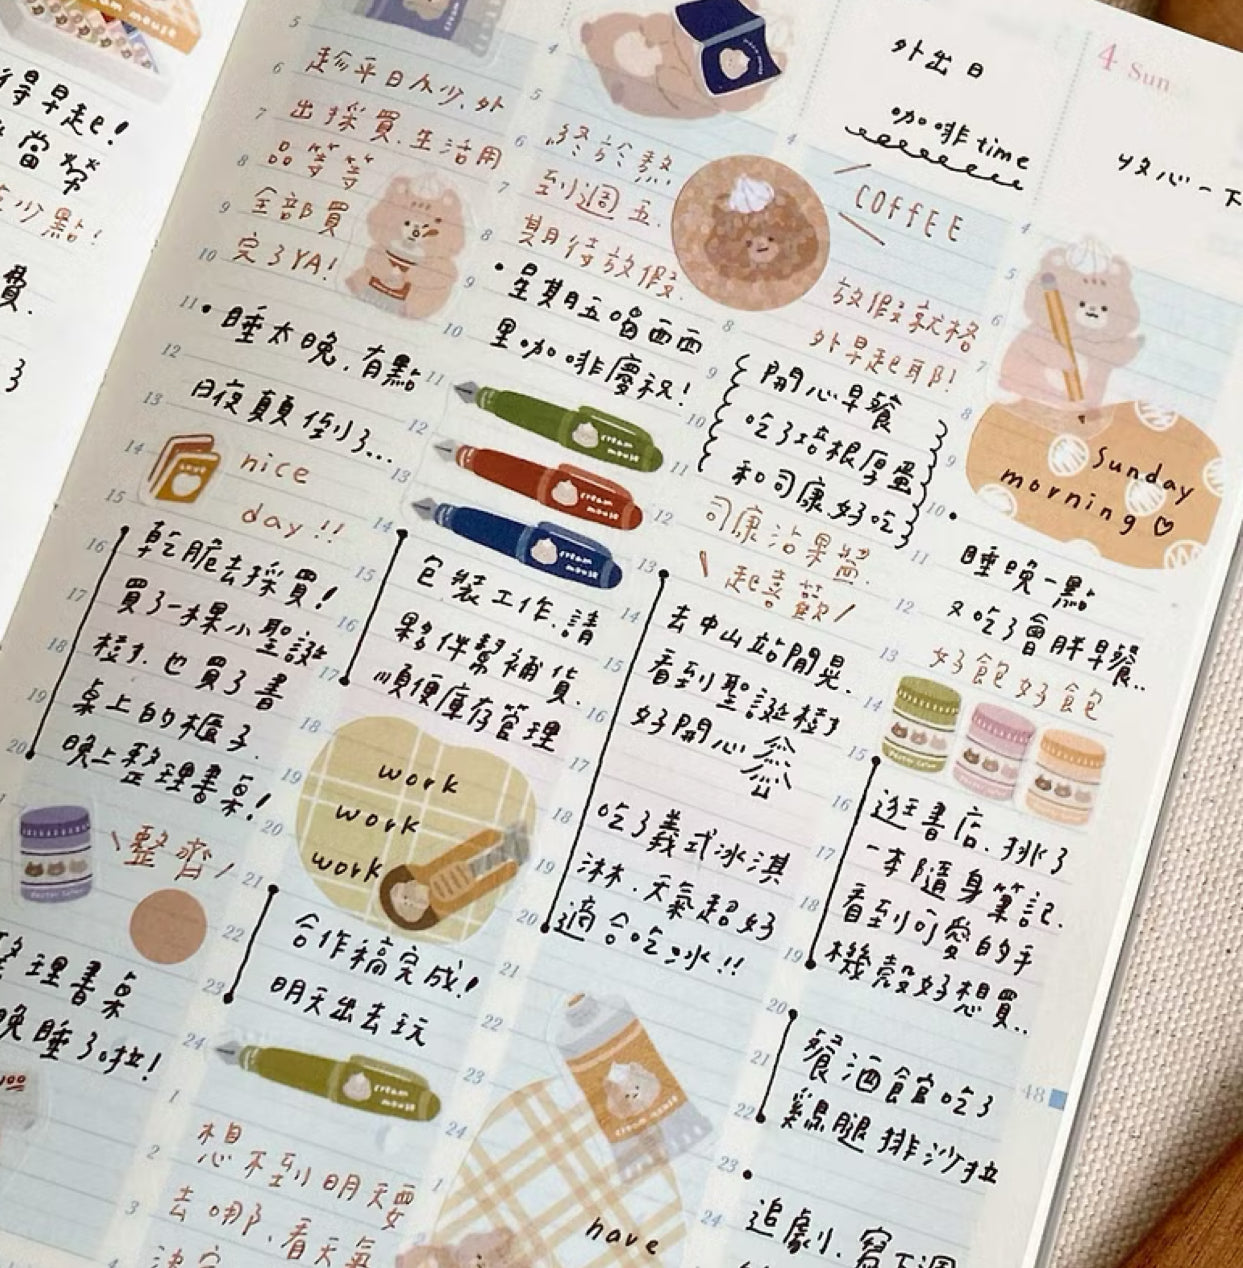 得早起!
少點!
費.
了
整理書桌
晚睡了啦!
100
5
6
7
8
9
10
11
12
13
14
15
16
17
18
19
20
趁平日人少、外
出採買.生活用
品等等
全部買
完了YA!
•睡太晚.有點
日夜顛倒了...
nice
day!!
乾脆去採買!
買了一棵小聖誕
樹.也買了書
桌上的櫃子.
晚上整理書桌!
\整齊/
4
5
6
7
8
9
10
11
12
13
14
15
16
17
18
19
20
21
22
23
24
1
2
3
終於熬
到週五.
期待放假.
•星期五喝西西
里咖啡慶祝!
cream mouse
cream mouse
cream mouse
包裝工作.請
夥伴幫補貨.
順便庫存管理
work
work
work
合作稿完成!
明天出去玩
cream mouse
想不到明天要
去哪.看天氣
決定
外出日
咖啡time
COFFEE
4
8
9
10
11
12
13
14
15
16
17
18
19
20
21
22
23
24
1
放假就格
外早起耶!
開心早餐
吃了培根厚蛋
和司康好吃
司康沾果醬.
\超喜歡/
去中山站閒晃.
看到聖誕樹
好開心
吃了義式冰淇
淋.天氣超好
適合吃冰!!
cream mouse
have
4 Sun
放心一下
4
5
6
7
8
9
10
11
12
13
14
15
16
17
18
19
20
21
22
23
24
Sunday
morning ♡
•睡晚一點
又吃了會胖早餐..
好飽好飽
逛書店.挑了
一本隨身筆記.
看到可愛的手
機殼好想買..
餐酒館吃了
雞腿排沙拉
48
•追劇.寫下週